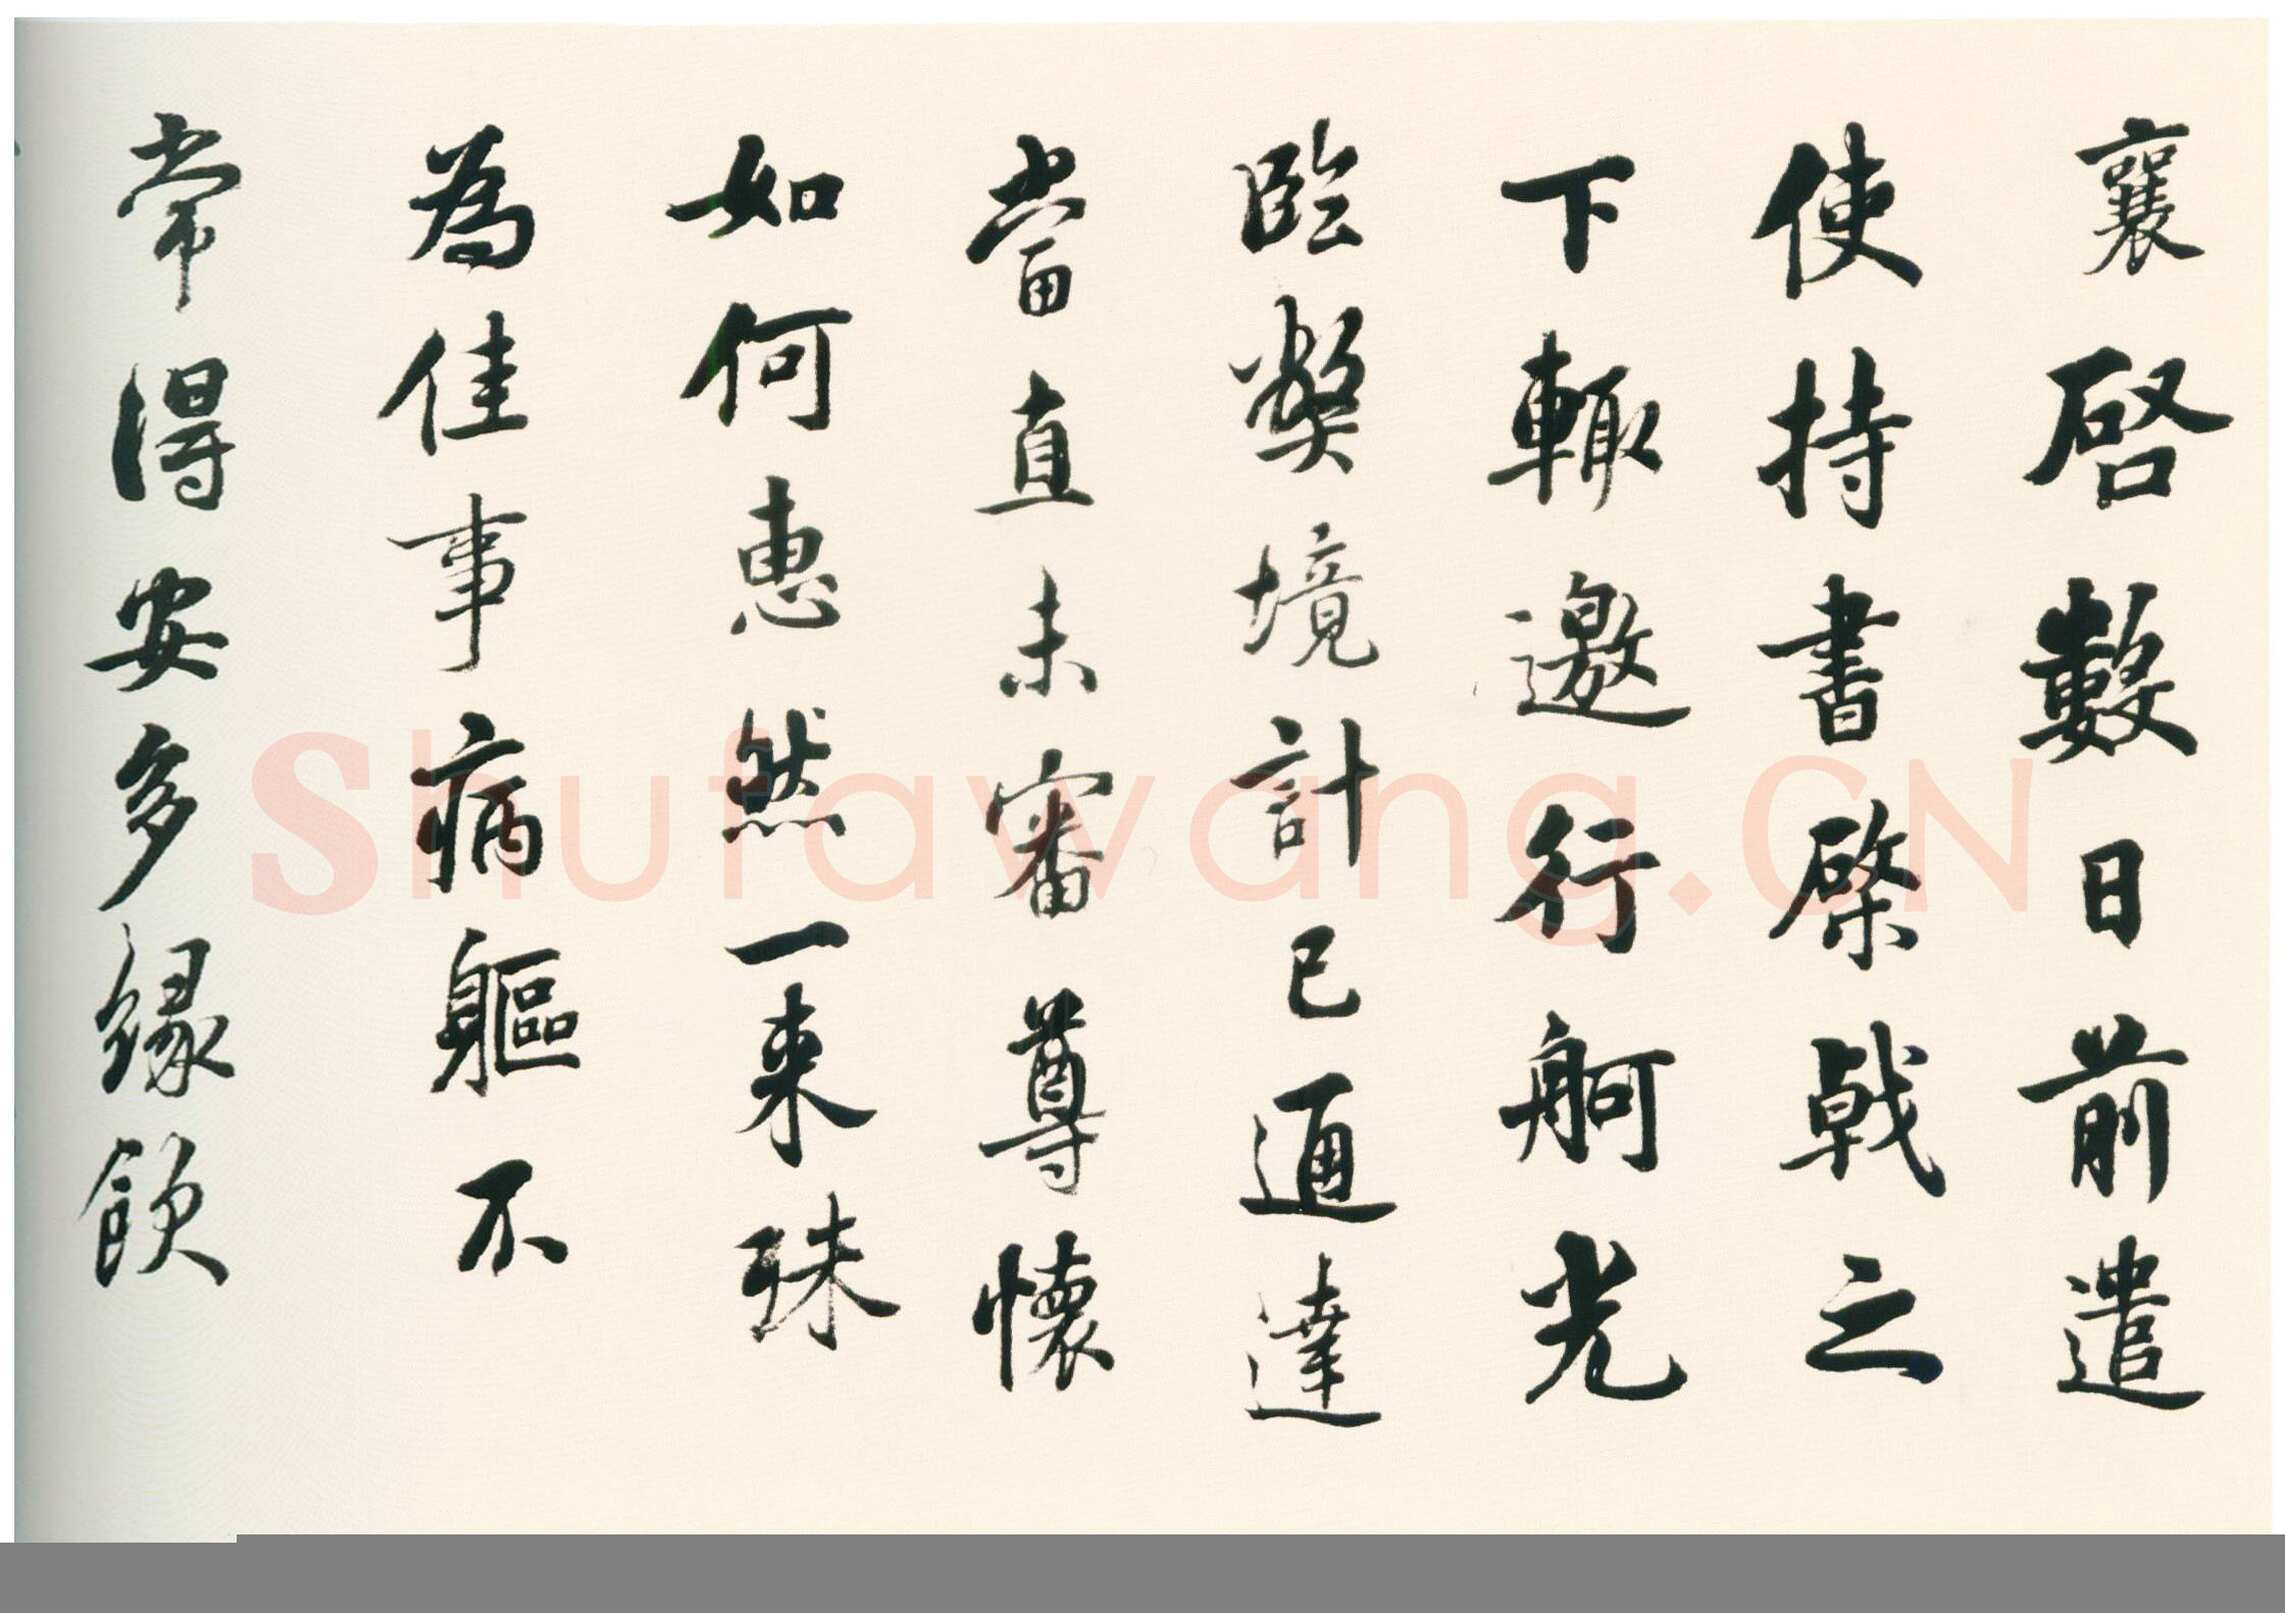 襄啓數日前遣
使持書棨戟之
下輙邀行舸光
臨弊境計已通達
當直未審尊懷
如何惠然一来殊
為佳事病軀不
常得安多緣飲
Shufawang.CN